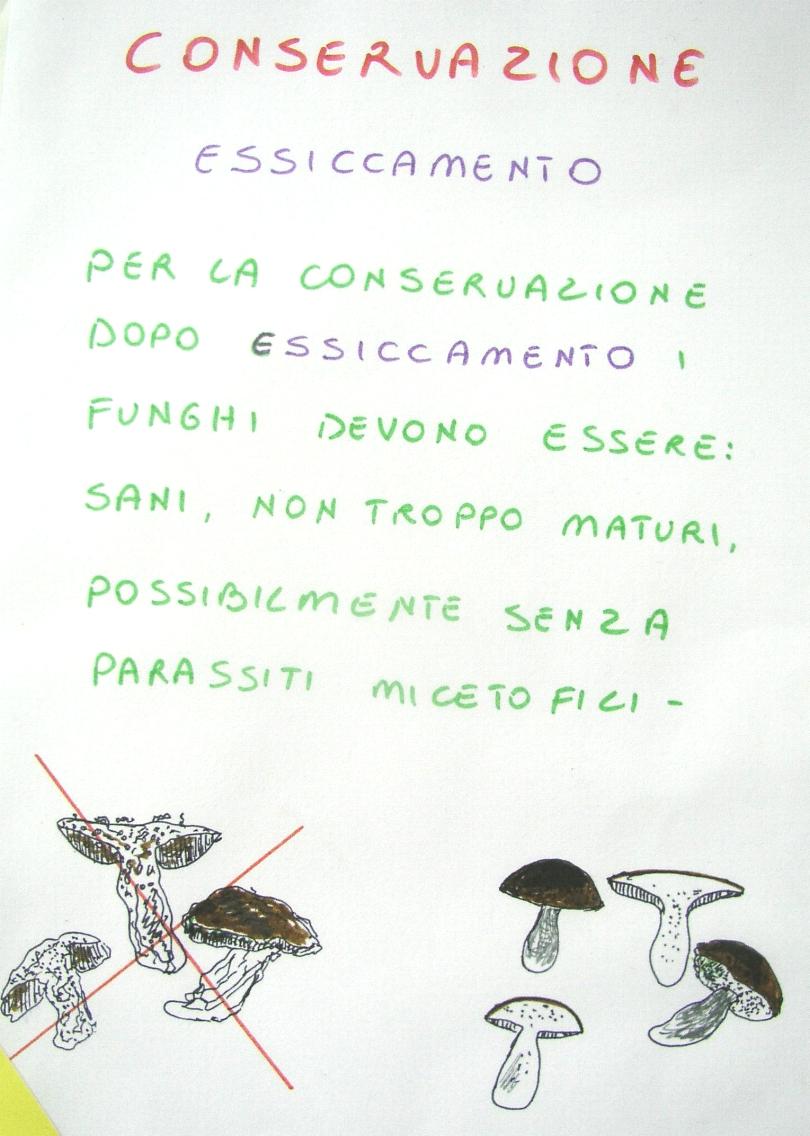 CONSERVAZIONE
ESSICCAMENTO
PER LA CONSERVAZIONE
DOPO ESSICCAMENTO I
FUNGHI DEVONO ESSERE:
SANI, NON TROPPO MATURI,
POSSIBILMENTE SENZA
PARASSITI MICETOFILI -